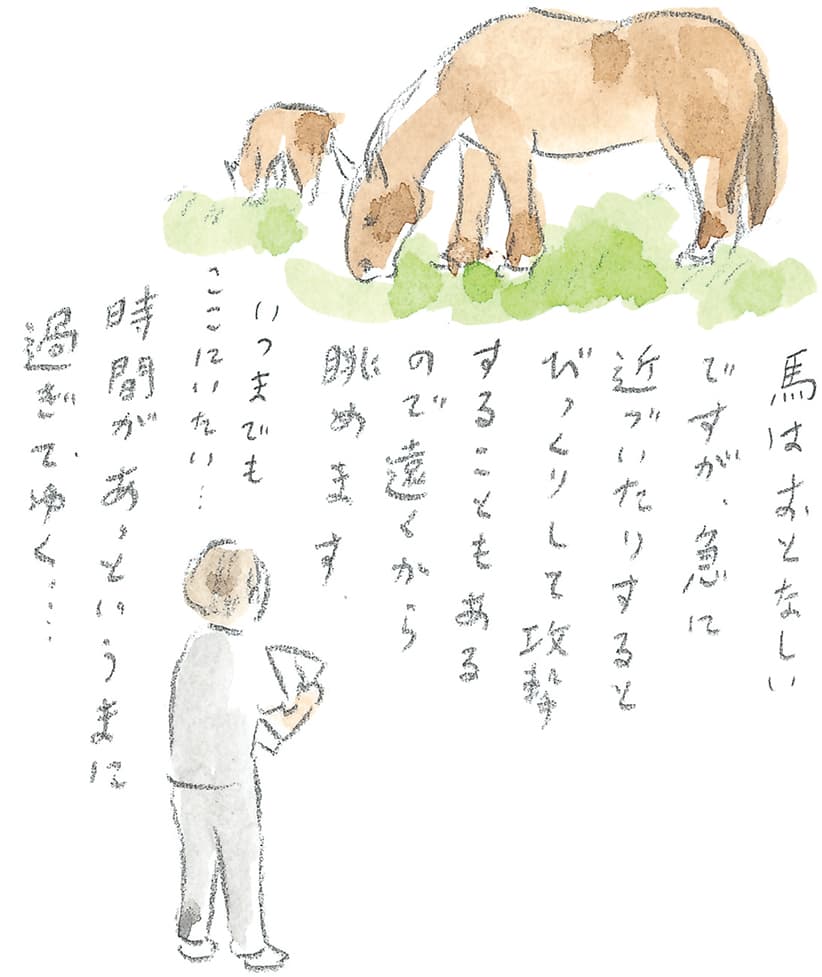 馬はおとなしい
ですが、急に
近づいたりすると
びっくりして攻撃
することもある
ので遠くから
眺めます.
いつまでも
ここにいたい…
時間があっというまに
過ぎてゆく……